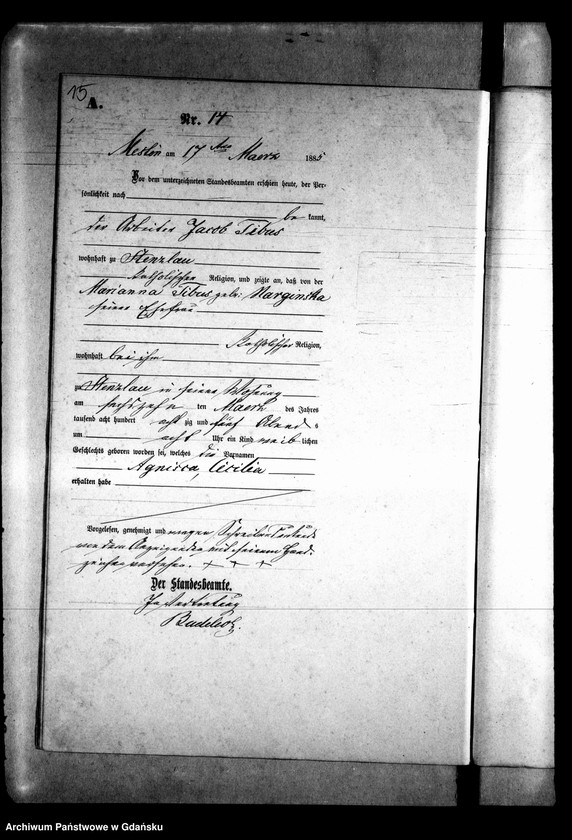 15
A.
Nr. 14
Mestin am 17 ten Maerz 1885
Vor dem unterzeichneten Standesbeamten erschien heute, der Per-
sönlichkeit nach
be kannt,
der Arbeiter Jacob Tibus
wohnhaft zu Stenzlau
katholischer Religion, und zeigte an, daß von der
Marianna Tibus geb: Narginska
seiner Ehefrau
Katholischer Religion,
wohnhaft bei ihm
zu Stenzlau in seiner Wohnung
am sechszehn ten Maerz des Jahres
tausend acht hundert acht zig und fünf Abends
um acht Uhr ein Kind weib lichen
Geschlechts geboren worden sei, welches die Vornamen
Cecilia
erhalten habe
Vorgelesen, genehmigt und wegen
von dem Anzeigenden mit seinem Hand-
zeichen versehen. + + +
Der Standesbeamte.
In Vertretung